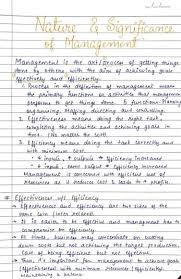 Nature & Significance
of Management
Management is the art/process of getting things
done by others with the aim of achieving goals
effectively and efficiently.
1. Process in the definition of management means
the primary functions or activities that management
performs to get things done. 5 functions- Planning
organising, staffing, directing and controlling.
2. Effectiveness means doing the right task,
completing the activities and achieving goals in
time.
3. Efficiency means doing the task correctly and
with minimum cost.
inputs, outputs = efficiency increases
input, same output = efficiency increases
Management is concerned with efficient use of
resources as it reduces cost & leads to profit.
# Effectiveness v/s efficiency
Effectiveness and efficiency are two sides of the
same coin
It is easier to be effective and management has to
compromise on efficiency.
At times, business may concentrate on cutting
down costs but not achieving the target production.
Case of being efficient but not effective.
Thus, it is important for management to achieve goals
effectiveness with minimum resources (efficiently)
maintaining a balance.